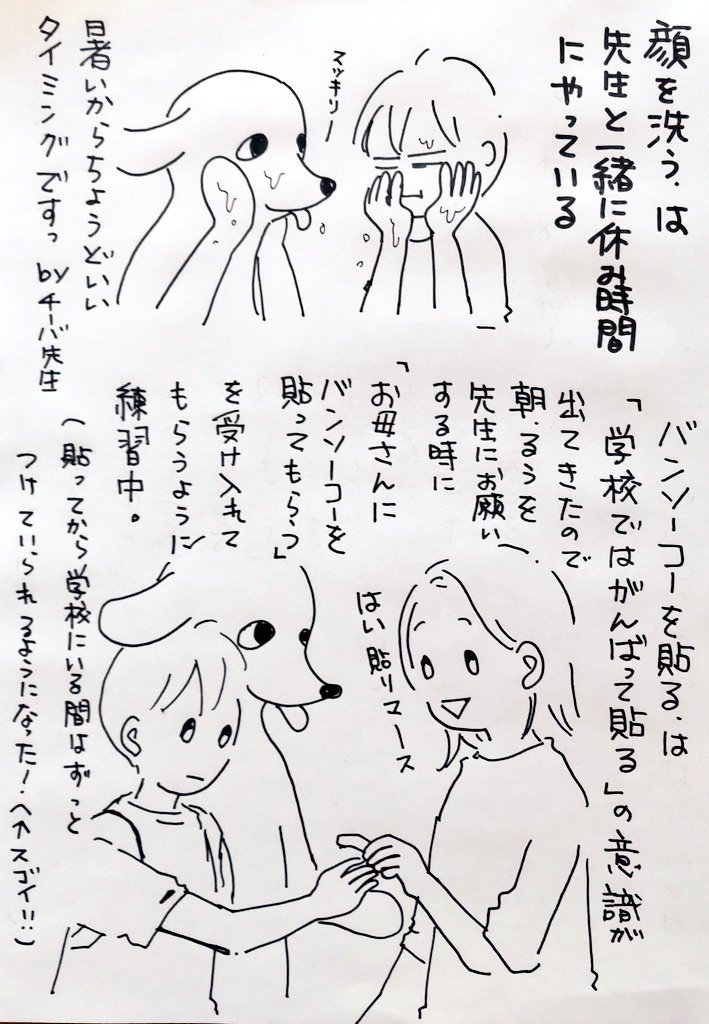 顔を洗う．は
先生と一緒に休み時間
にやっている
スッキリー
暑いからちょうどいい
タイミングですっ byチーバ先生
バンソーコーを貼る．は
「学校ではがんばって貼る」の意識が
出てきたので
朝．るぅを
先生にお願い
する時に
「お母さんに
バンソーコーを
貼ってもらう」
を受け入れて
もらうように
練習中。
(貼ってから学校にいる間はずっと
つけていられるようになった！へ↑スゴイ!!)
はい 貼りマース